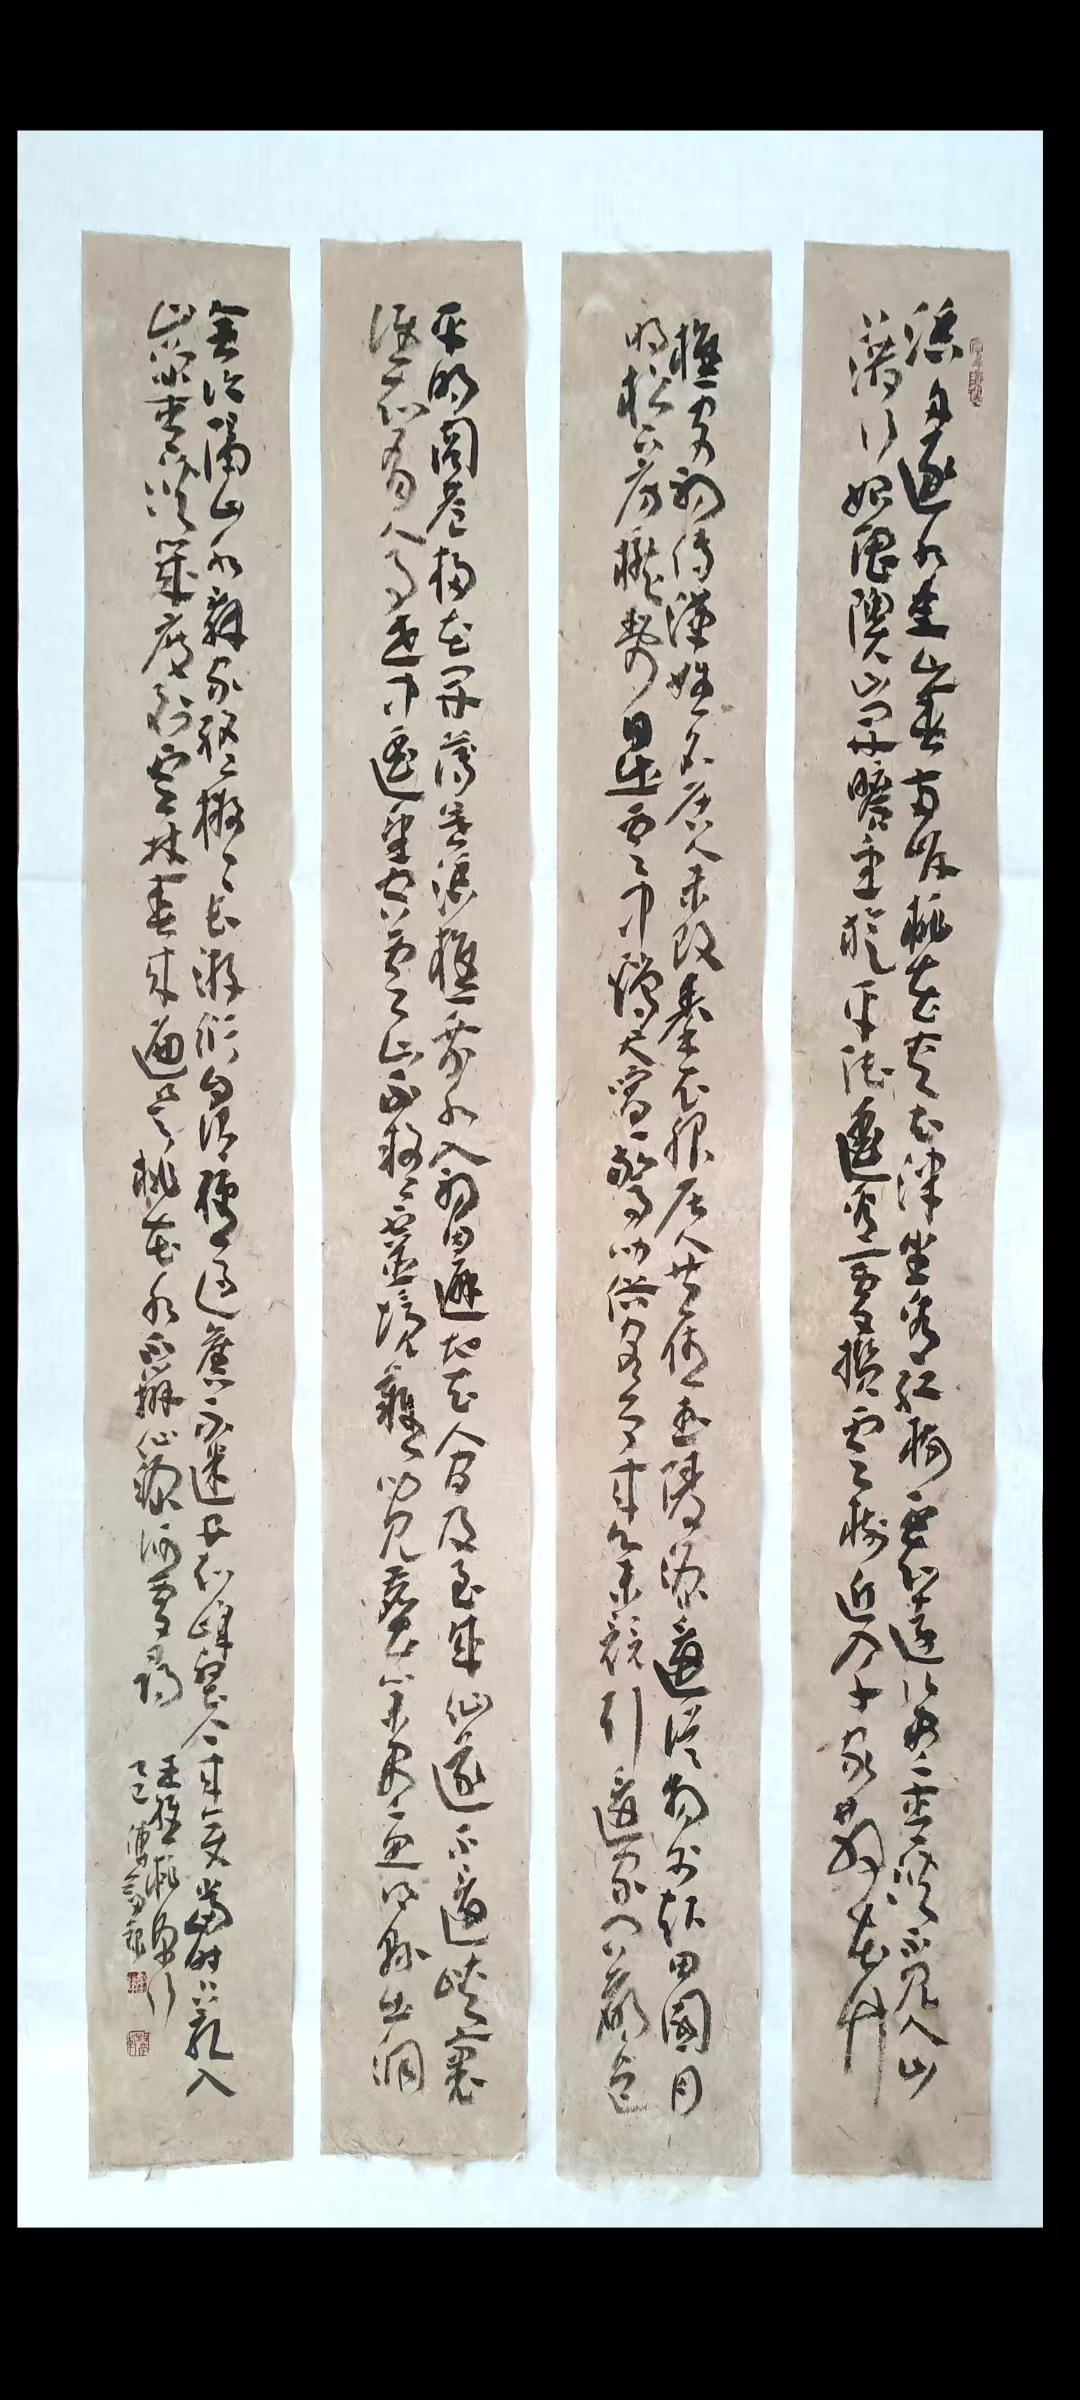 漁舟逐水愛山春兩岸桃花夾古津坐看紅樹不知遠行盡青溪不見人山
口潛行始隈隩山開曠望旋平陸遙看一處攢雲樹近入千家散花竹
樵客初傳漢姓名居人未改秦衣服居人共住武陵源還從物外起田園月
明松下房櫳靜日出雲中雞犬喧驚聞俗客爭來集競引還家問都邑
平明閭巷掃花開薄暮漁樵乘水入初因避地去人間及至成仙遂不還峽裏
誰知有人事世中遙望空雲山不疑靈境難聞見塵心未盡思鄉縣出洞
無論隔山水辭家終擬長游衍自謂經過舊不迷安知峰壑今來變當時只記入
山深青溪幾度到雲林春來遍是桃花水不辨仙源何處尋
王維桃源行
乙巳傅